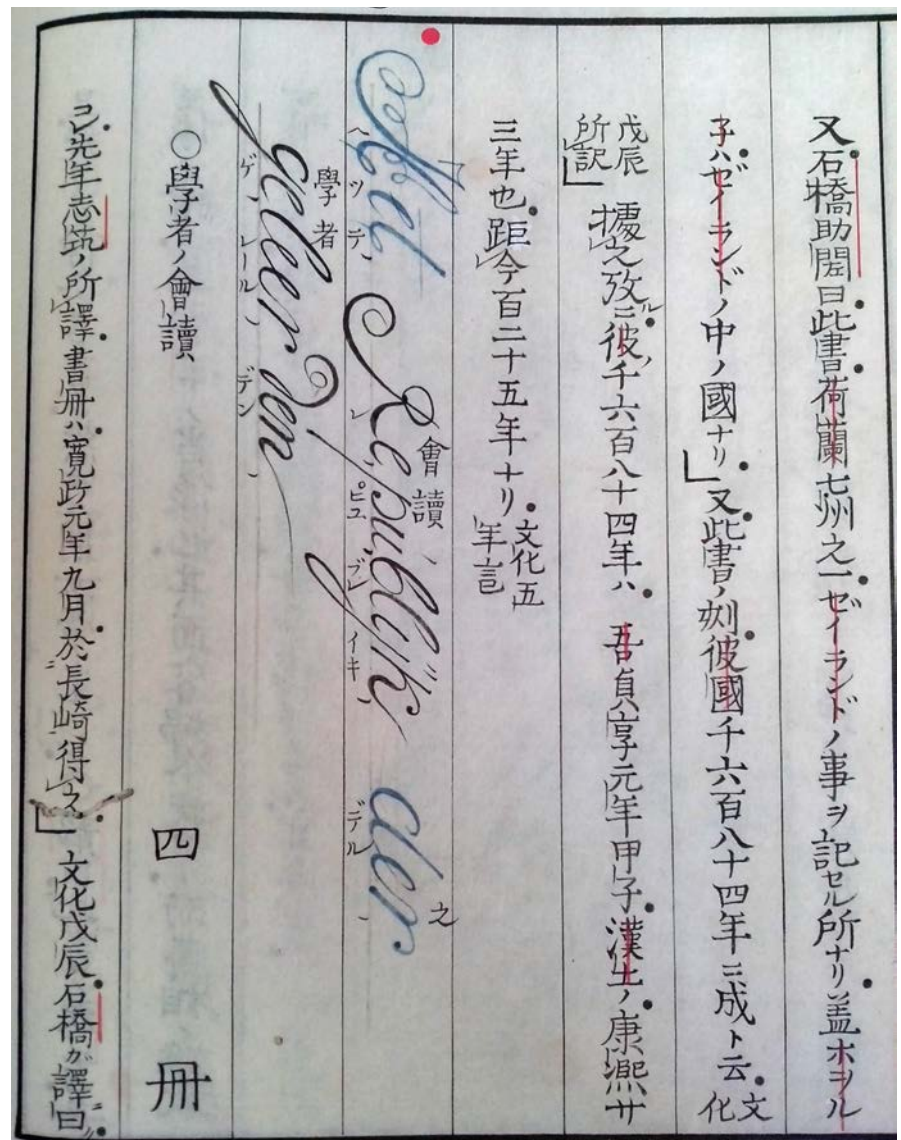 又石橋助䦨曰此書荷蘭七州之一ゼイランドノ事ヲ記セル所ナリ盖ホヲル
子ハゼイランドノ中ノ國ナリ」又此書ノ刻彼國千六百八十四年ニ成ト云文化
戊辰所訳」 據之攷ニ彼ノ千六百八十四年ハ 吾貞享元年甲子漢土ノ康熙廿
三年也距今百二十五年ナリ文化五年言
Het Republijk der
ヘツテ、レ、ピユブレイキ、デル、
會讀 之
geleerden
ゲ、レールデン、
學者
○學者ノ會讀 四 冊
コレ先年志筑ノ所譯書冊ハ寛政元年九月於長崎得之」文化戊辰石橋が譯曰